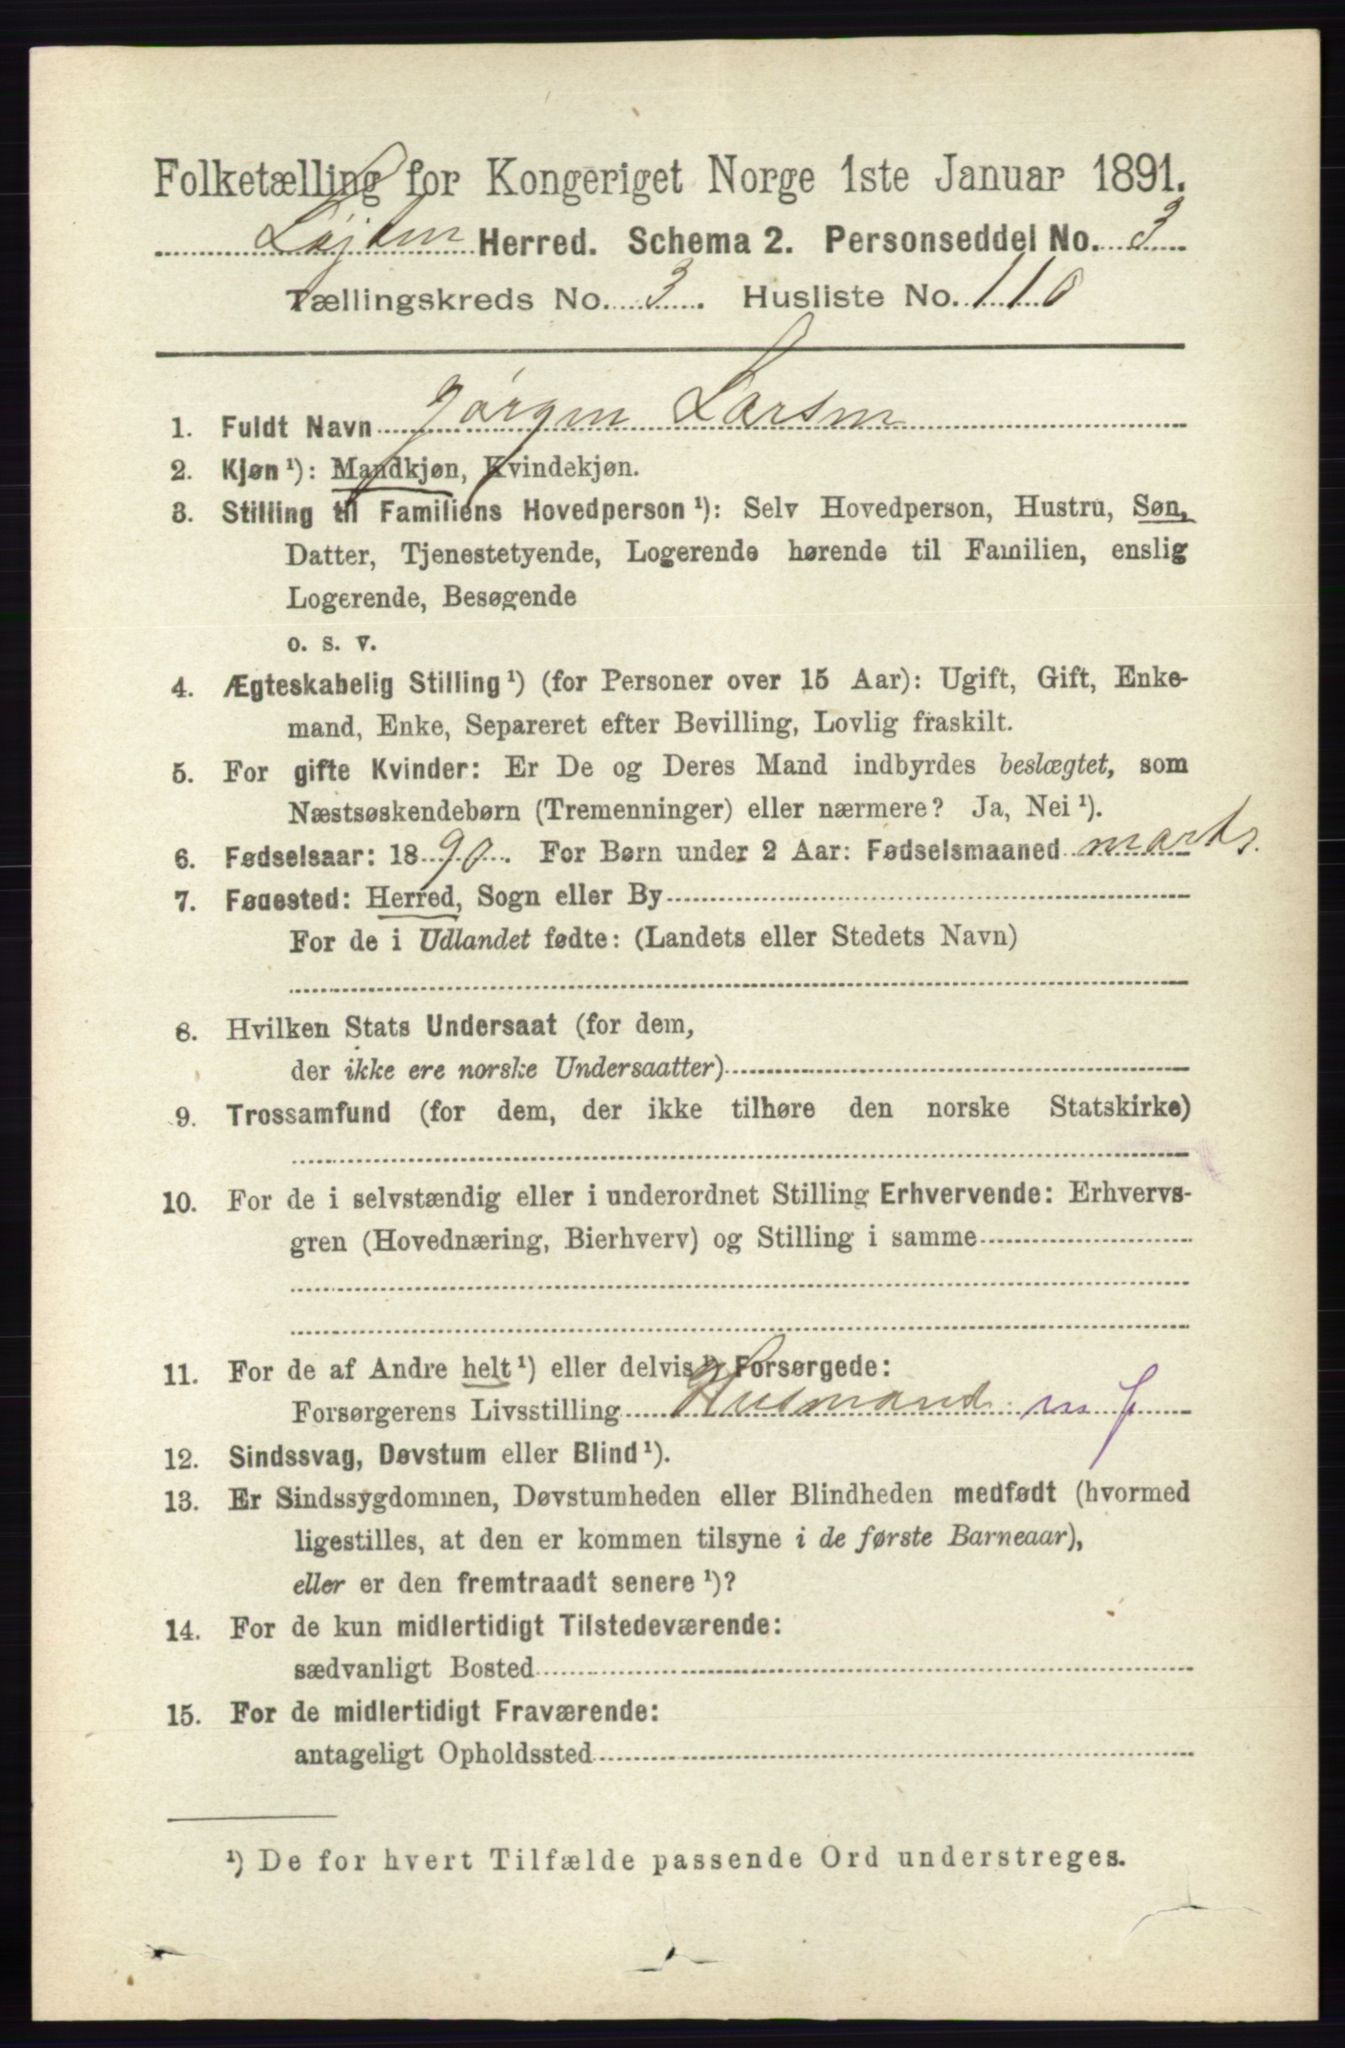 Folketælling for Kongeriget Norge 1ste Januar 1891.
Løjten Herred. Schema 2. Personseddel No. 3
Tællingskreds No. 3. Husliste No. 110
1. Fuldt Navn Jørgen Larsen
2. Kjøn ¹): Mandkjøn, Kvindekjøn.
3. Stilling til Familiens Hovedperson ¹): Selv Hovedperson, Hustru, Søn,
Datter, Tjenestetyende, Logerende hørende til Familien, enslig
Logerende, Besøgende
o. s. v.
4. Ægteskabelig Stilling ¹) (for Personer over 15 Aar): Ugift, Gift, Enke-
mand, Enke, Separeret efter Bevilling, Lovlig fraskilt.
5. For gifte Kvinder: Er De og Deres Mand indbyrdes beslægtet, som
Næstsøskendebørn (Tremenninger) eller nærmere? Ja, Nei ¹).
6. Fødselsaar: 1890. For Børn under 2 Aar: Fødselsmaaned marts.
7. Fødested: Herred, Sogn eller By
For de i Udlandet fødte: (Landets eller Stedets Navn)
8. Hvilken Stats Undersaat (for dem,
der ikke ere norske Undersaatter)
9. Trossamfund (for dem, der ikke tilhøre den norske Statskirke)
10. For de i selvstændig eller i underordnet Stilling Erhvervende: Erhvervs-
gren (Hovednæring, Bierhverv) og Stilling i samme
11. For de af Andre helt ¹) eller delvis ¹) Forsørgede:
Forsørgerens Livsstilling Husmand m f
12. Sindssvag, Døvstum eller Blind ¹).
13. Er Sindssygdommen, Døvstumheden eller Blindheden medfødt (hvormed
ligestilles, at den er kommen tilsyne i de første Barneaar),
eller er den fremtraadt senere ¹)?
14. For de kun midlertidigt Tilstedeværende:
sædvanligt Bosted
15. For de midlertidigt Fraværende:
antageligt Opholdssted
¹) De for hvert Tilfælde passende Ord understreges.